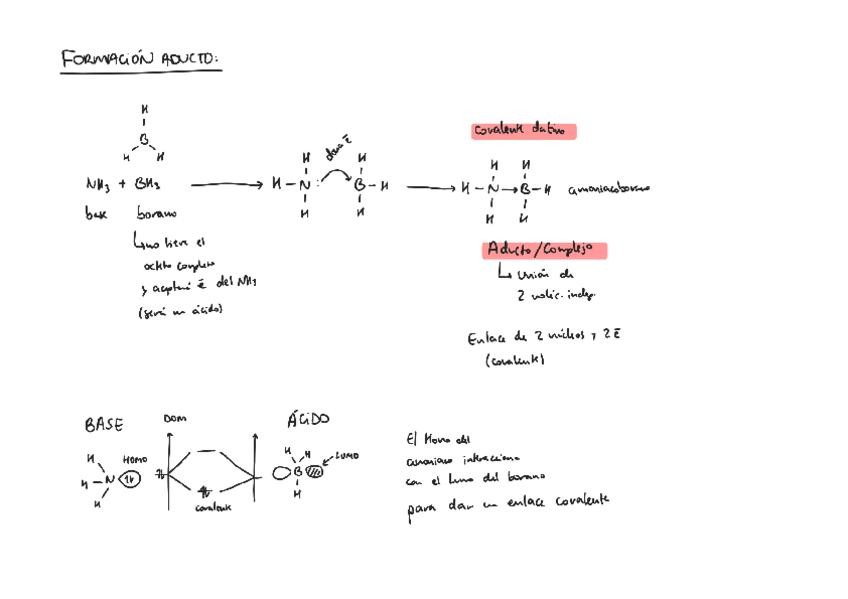 FORMACIÓN ADUCTO:
H
B
H H
NH₃ + BH₃
base borano
no tiene el
octeto completo
y aceptará ē del NH₃
(será un ácido)
H H
H-N: B-H
H H
dona ē
covalente dativo
H H
H-N→B-H amoniacoborano
H H
Aducto/Complejo
Unión de
2 moléc. indep.
Enlace de 2 núcleos y 2ē
(covalente)
BASE DOM ÁCIDO
H HOMO
H-N
H
covalente
H H LUMO
B
H
El Homo del
amoniaco interacciona
con el lumo del borano
para dar un enlace covalente